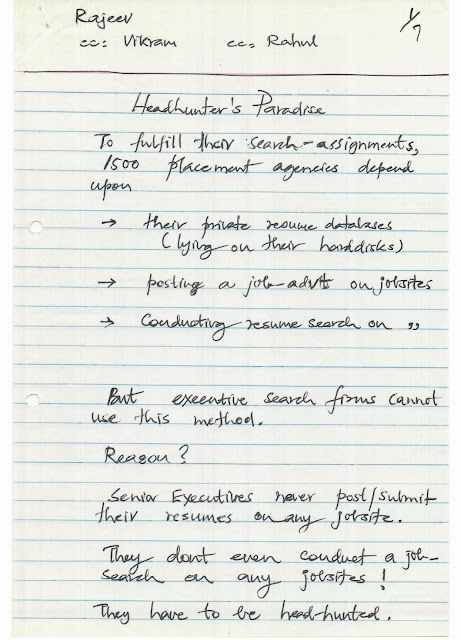 Rajeev
1/7
cc: Vikram cc: Rahul
Headhunter's Paradise
To fulfill their search-assignments,
1500 placement agencies depend
upon
→ their private resume databases
(lying on their harddisks)
→ posting a job-advt on jobsites
→ Conducting resume search on ,,
But executive search firms cannot
use this method.
Reason?
Senior Executives never post/submit
their resumes on any jobsite.
They dont even conduct a job-
search on any jobsites!
They have to be head-hunted.